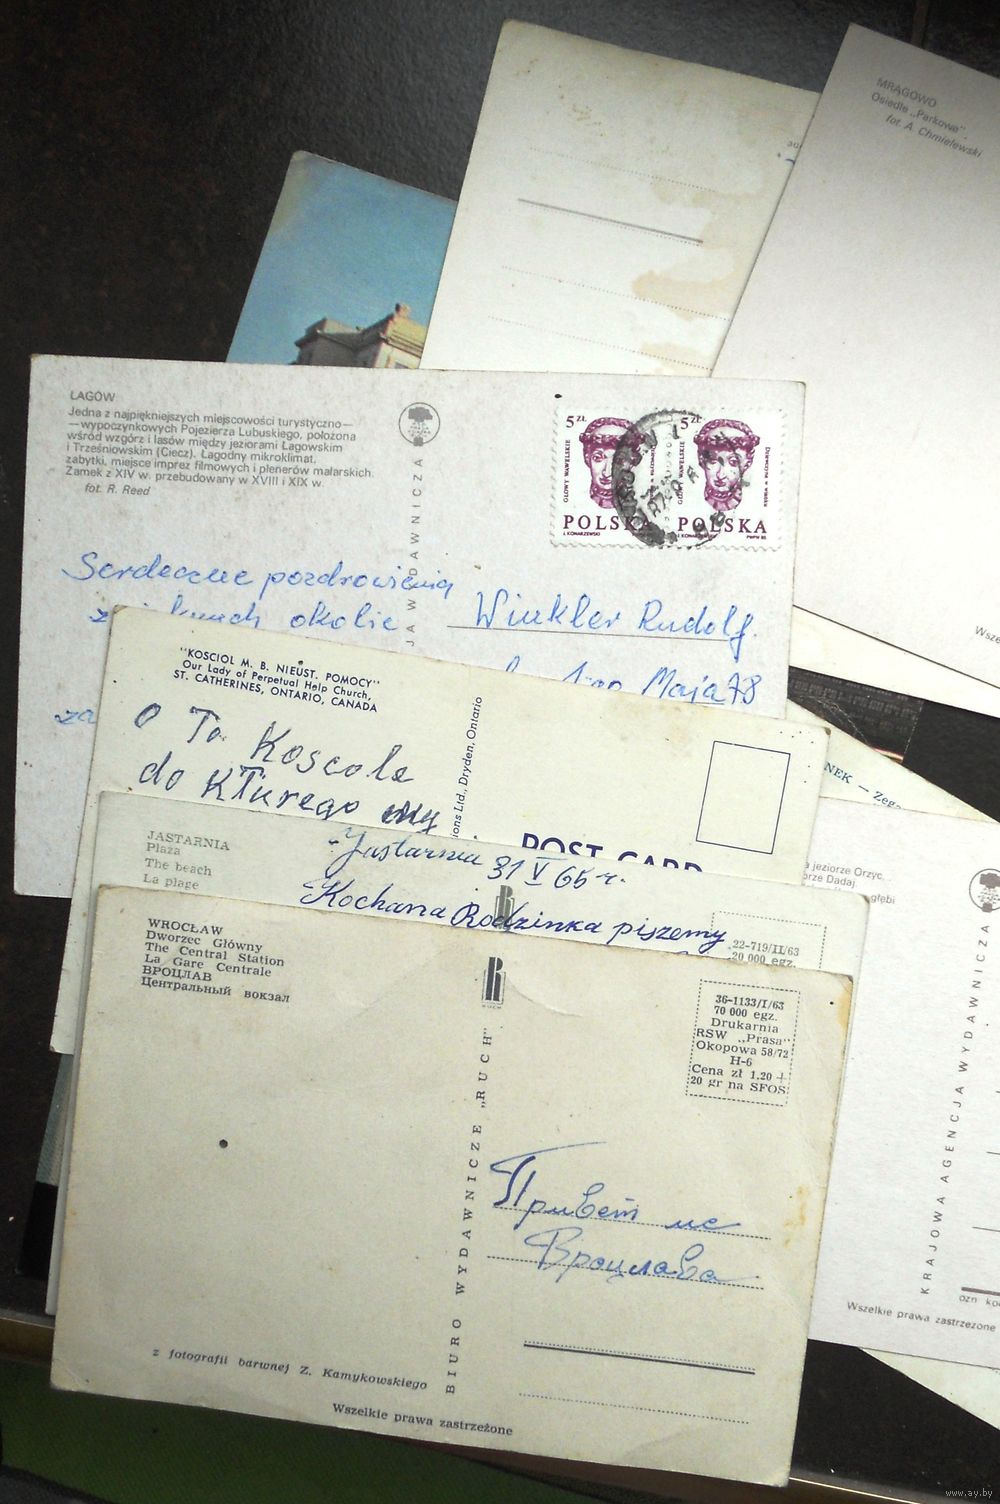 MRĄGOWO
Osiedle „Parkowe".
fot. A. Chmielewski
ŁAGÓW
Jedna z najpiękniejszych miejscowości turystyczno—
—wypoczynkowych Pojezierza Lubuskiego, położona
wśród wzgórz i lasów między jeziorami Łagowskim
i Trześniowskim (Ciecz). Łagodny mikroklimat,
zabytki, miejsce imprez filmowych i plenerów malarskich.
Zamek z XIV w. przebudowany w XVIII i XIX w.
fot. R. Reed
5 ZŁ
GŁOWY WAWELSKIE
POLSKA
J. KONARZEWSKI
5 ZŁ
GŁOWY WAWELSKIE
POLSKA
J. KONARZEWSKI
PWPW 85
JA WYDAWNICZA
Serdeczne pozdrowienia
okolic
za
Winkler Rudolf.
Maja 78
"KOSCIOL M. B. NIEUST. POMOCY"
Our Lady of Perpetual Help Church,
ST. CATHERINES, ONTARIO, CANADA
O To Koscole
do kTurego my
ions Ltd., Dryden, Ontario
POST CARD
NEK — Zeg
JASTARNIA
Plaża
The beach
La plage
Jastarnia 31 V 65 r.
Kochana Rodzinka piszemy
22-719/II/63
20 000 egz.
a jeziorze Orzyc,
orze Dadaj.
głębi
KRAJOWA AGENCJA WYDAWNICZA
Wszelkie prawa zastrzeżone
WROCŁAW
Dworzec Główny
The Central Station
La Gare Centrale
ВРОЦЛАВ
Центральный вокзал
RUCH
36-1133/I/63
70 000 egz.
Drukarnia
RSW „Prasa"
Okopowa 58/72
H-6
Cena zł 1.20 +
20 gr na SFOS
BIURO WYDAWNICZE „RUCH"
Привет ис
Вроцлава
z fotografii barwnej Z. Kamykowskiego
Wszelkie prawa zastrzeżone
www.ay.by